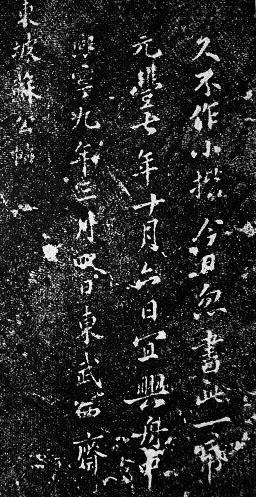 久不作小楷今日忽書此一紙
元豐七年十月六日宜興舟中
熙寧九年三月四日東武西齋
東坡蘇公帖